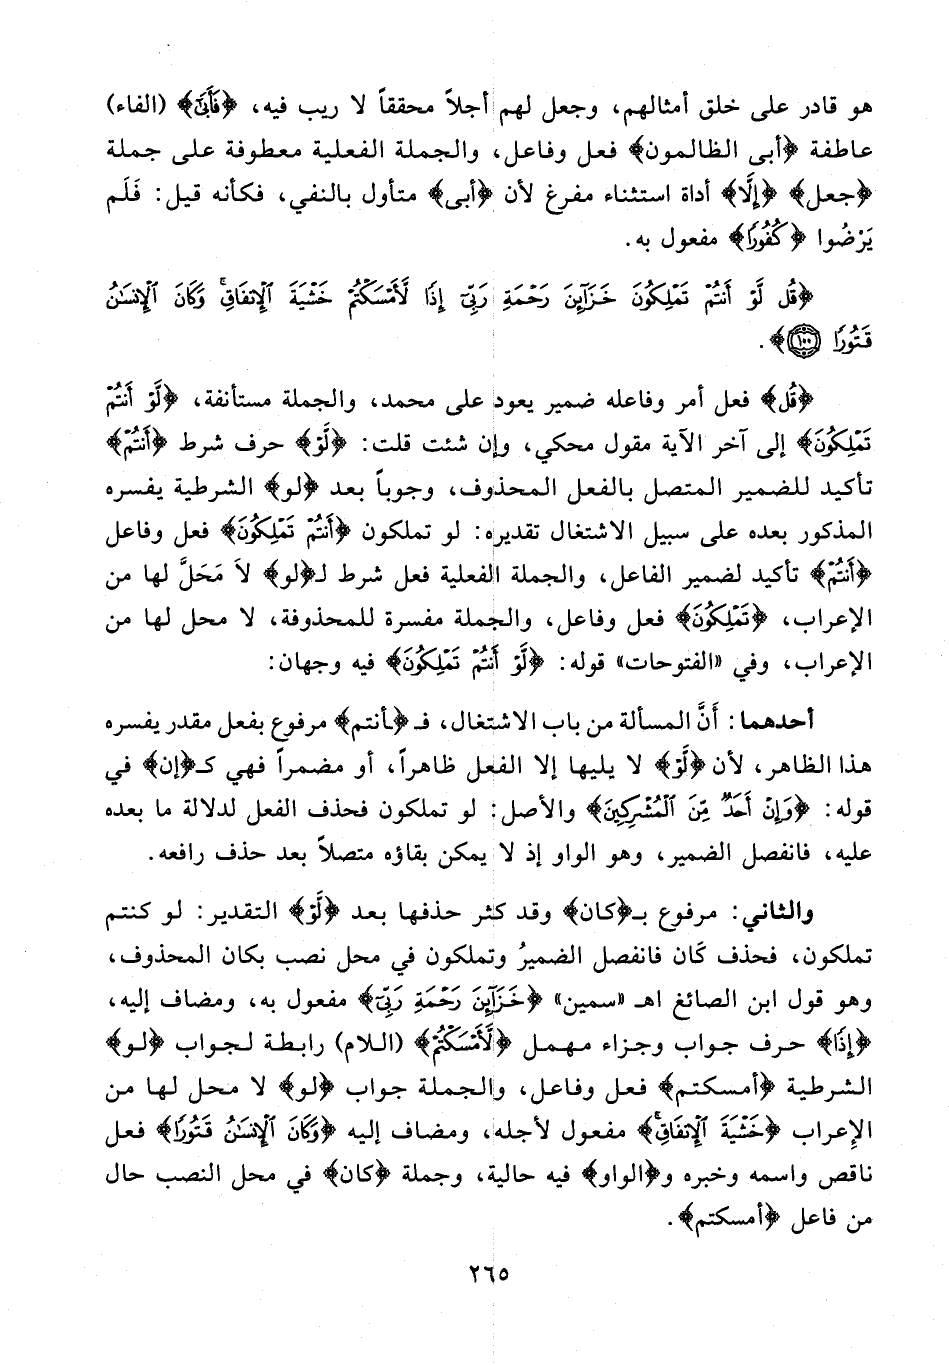 هو قادر على خلق أمثالهم، وجعل لهم أجلاً محققاً لا ريب فيه، ﴿فَأَبَى﴾ (الفاء)
عاطفة ﴿أبى الظالمون﴾ فعل وفاعل، والجملة الفعلية معطوفة على جملة
﴿جعل﴾ ﴿إِلَّا﴾ أداة استثناء مفرغ لأن ﴿أبى﴾ متأول بالنفي، فكأنه قيل: فَلَم
يَرْضُوا ﴿كُفُورًا﴾ مفعول به.
﴿قُل لَّوْ أَنتُمْ تَمْلِكُونَ خَزَآئِنَ رَحْمَةِ رَبِّىٓ إِذًا لَّأَمْسَكْتُمْ خَشْيَةَ ٱلْإِنفَاقِ ۚ وَكَانَ ٱلْإِنسَـٰنُ
قَتُورًا ١٠٠﴾.
﴿قُل﴾ فعل أمر وفاعله ضمير يعود على محمد، والجملة مستأنفة، ﴿لَّوْ أَنتُمْ
تَمْلِكُونَ﴾ إلى آخر الآية مقول محكي، وإن شئت قلت: ﴿لَّوْ﴾ حرف شرط ﴿أَنتُمْ﴾
تأكيد للضمير المتصل بالفعل المحذوف، وجوباً بعد ﴿لو﴾ الشرطية يفسره
المذكور بعده على سبيل الاشتغال تقديره: لو تملكون ﴿أَنتُمْ تَمْلِكُونَ﴾ فعل وفاعل
﴿أَنتُمْ﴾ تأكيد لضمير الفاعل، والجملة الفعلية فعل شرط لـ﴿لو﴾ لاَ مَحَلَّ لها من
الإعراب، ﴿تَمْلِكُونَ﴾ فعل وفاعل، والجملة مفسرة للمحذوفة، لا محل لها من
الإعراب، وفي «الفتوحات» قوله: ﴿لَّوْ أَنتُمْ تَمْلِكُونَ﴾ فيه وجهان:
أحدهما: أَنَّ المسألة من باب الاشتغال، فـ ﴿أنتم﴾ مرفوع بفعل مقدر يفسره
هذا الظاهر، لأن ﴿لَّوْ﴾ لا يليها إلا الفعل ظاهراً، أو مضمراً فهي كـ﴿إن﴾ في
قوله: ﴿وَإِنْ أَحَدٌ مِّنَ ٱلْمُشْرِكِينَ﴾ والأصل: لو تملكون فحذف الفعل لدلالة ما بعده
عليه، فانفصل الضمير، وهو الواو إذ لا يمكن بقاؤه متصلاً بعد حذف رافعه.
والثاني: مرفوع بـ﴿كان﴾ وقد كثر حذفها بعد ﴿لَّوْ﴾ التقدير: لو كنتم
تملكون، فحذف كَان فانفصل الضميرُ وتملكون في محل نصب بكان المحذوف،
وهو قول ابن الصائغ اهـ «سمين» ﴿خَزَآئِنَ رَحْمَةِ رَبِّىٓ﴾ مفعول به، ومضاف إليه،
﴿إِذًا﴾ حرف جواب وجزاء مهمل ﴿لَّأَمْسَكْتُمْ﴾ (اللام) رابطة لجواب ﴿لو﴾
الشرطية ﴿أمسكتم﴾ فعل وفاعل، والجملة جواب ﴿لو﴾ لا محل لها من
الإعراب ﴿خَشْيَةَ ٱلْإِنفَاقِ ۚ﴾ مفعول لأجله، ومضاف إليه ﴿وَكَانَ ٱلْإِنسَـٰنُ قَتُورًا﴾ فعل
ناقص واسمه وخبره و﴿الواو﴾ فيه حالية، وجملة ﴿كان﴾ في محل النصب حال
من فاعل ﴿أمسكتم﴾.
٢٦٥